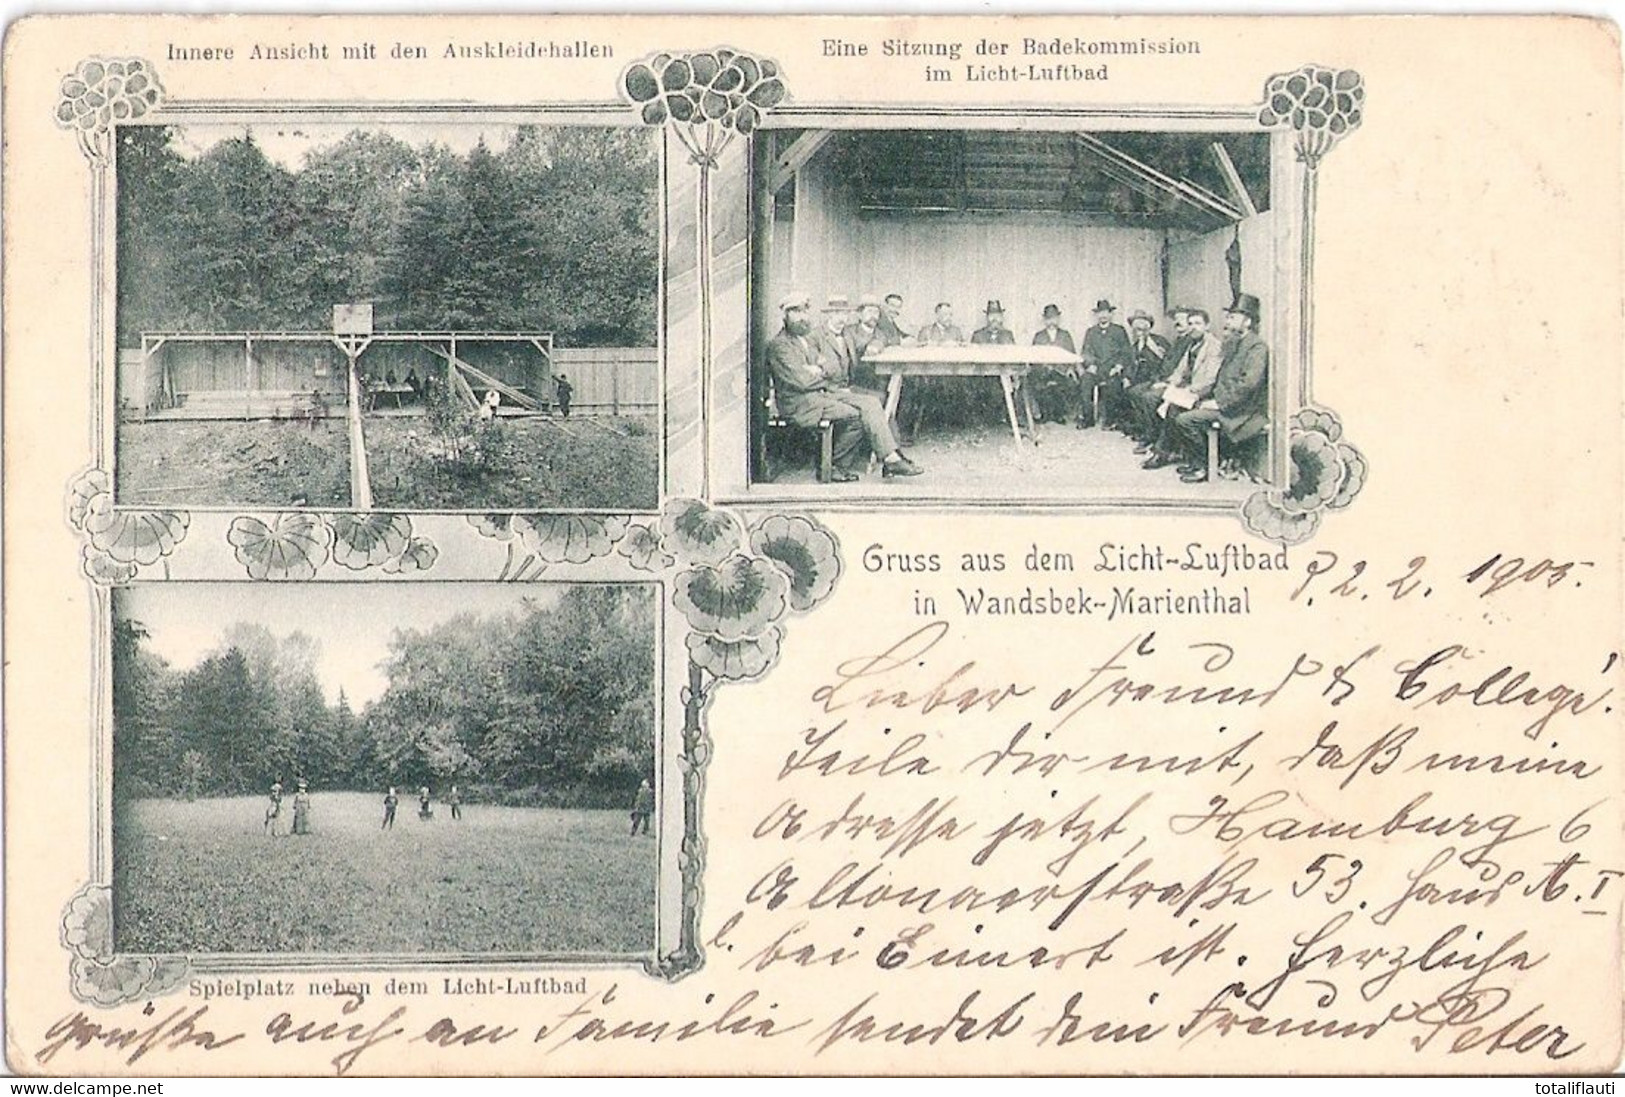 Innere Ansicht mit den Auskleidehallen
Eine Sitzung der Badekommission
im Licht-Luftbad
Gruss aus dem Licht-Luftbad
in Wandsbek-Marienthal
2. 2. 1905.
Lieber Freund & College!
Teile dir mit, daß meine
Adresse jetzt, Hamburg 6
Altonaerstraße 53. Haus A. I
l. bei Eimert ist. Herzliche
Spielplatz neben dem Licht-Luftbad
Grüße auch an Familie sendet dein Freund Peter
www.delcampe.net
totaliflauti